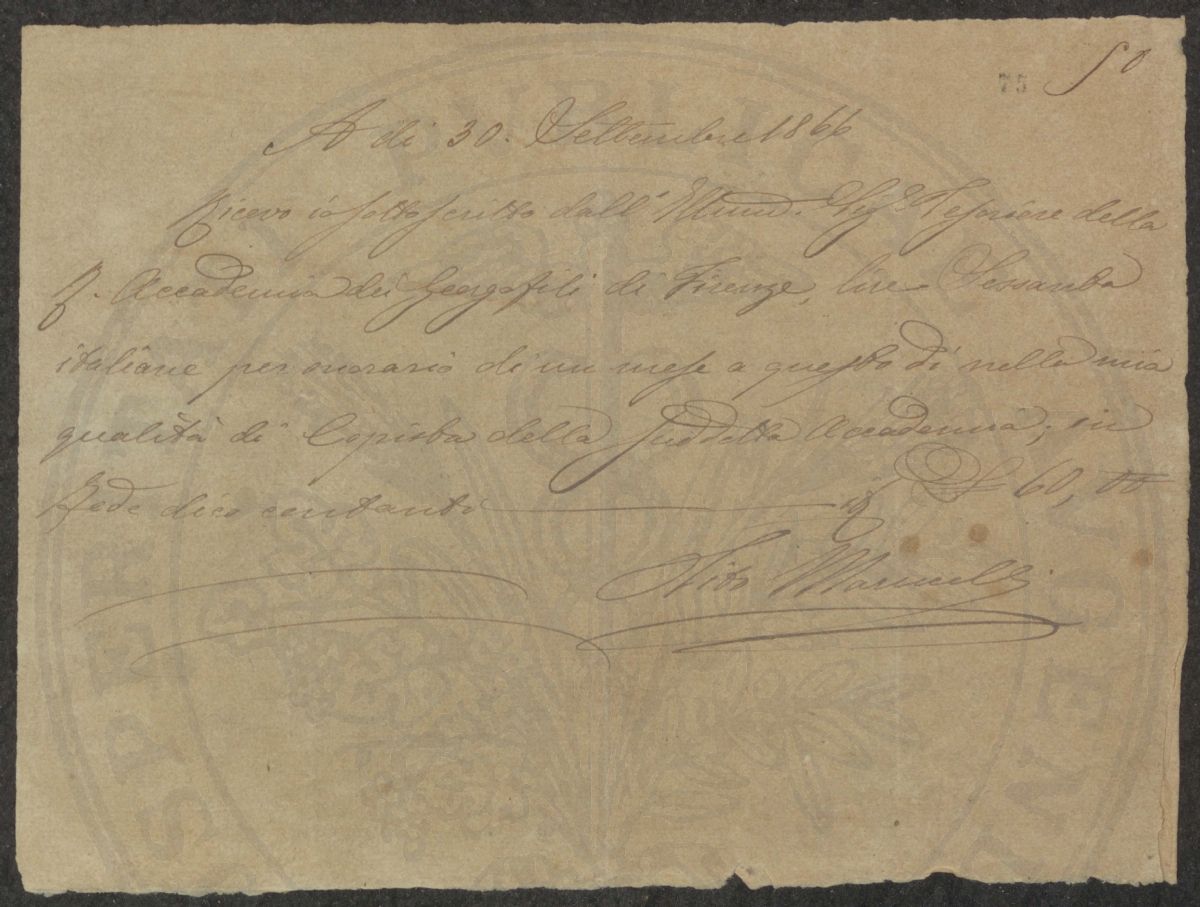 75 50
A di 30. Settembre 1866
Ricevo io sottoscritto dall' Sigr Tesoriere della
R. Accademia dei Georgofili di Firenze, lire Sessanta
italiane per onorario di un mese a questo dì nella mia
qualità di Copista della suddetta Accademia; in
fede dico contanti £ 60,00
Marucelli